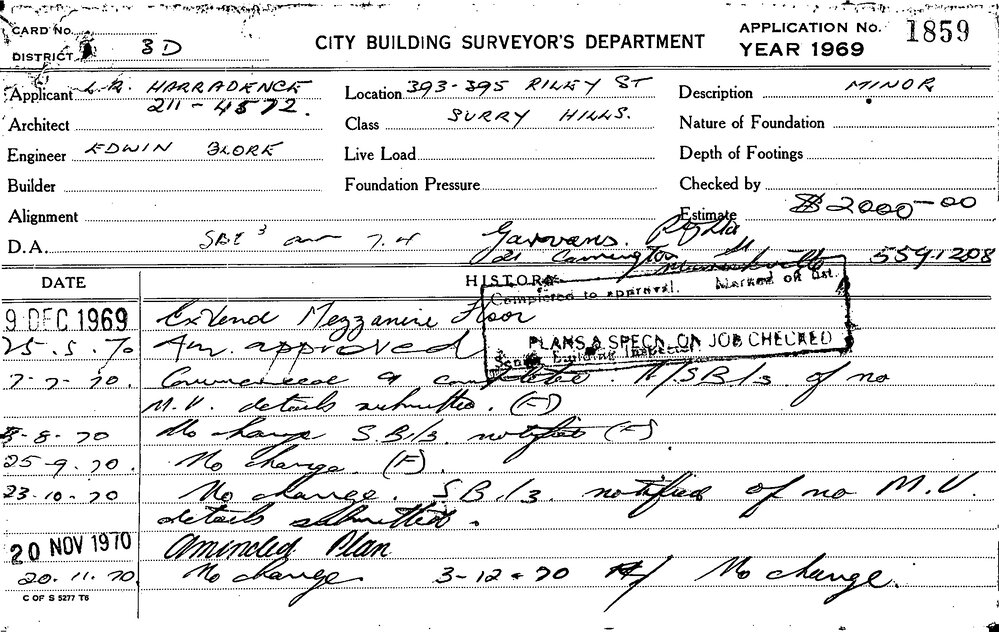 CARD No.
DISTRICT 3D
CITY BUILDING SURVEYOR'S DEPARTMENT
APPLICATION No. 1859
YEAR 1969
Applicant L.R. HARRADENCE
211-4572.
Location 393-395 RILEY ST
Description MINOR
Architect
Class SURRY HILLS.
Nature of Foundation
Engineer EDWIN BLORE
Live Load
Depth of Footings
Builder
Foundation Pressure
Checked by
Alignment
Estimate $2000-00
D.A.
Garvans. Pty Ltd
21 Carrington St
Marrickville 559-1208
DATE
HISTORY
Completed to approval. Marked off list.
PLANS & SPECN. ON JOB CHECKED
Senior Building Inspector
9 DEC 1969 Extend Mezzanine Floor
25.5.70 Am. approved
7-7-70. Commenced & completed. S.B./3 of no
M.V. details submitted. (F)
3-8-70 No change S.B./3. notified (F)
25-9.70. No change. (F).
23-10-70 No change. S.B./3. notified of no M.V.
details submitted.
20 NOV 1970 Amended Plan
20.11.70 No change 3-12-70 No change.
C OF S 5277 T6